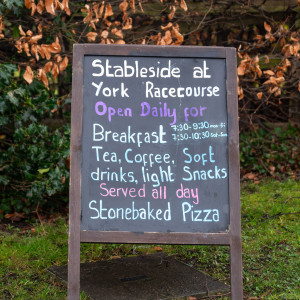 Stableside at
York Racecourse
Open Daily for
Breakfast 7:30-9:30 mon-Fri
7:30-10:30 Sat-Sun
Tea, Coffee, Soft
drinks, light Snacks
Served all day
Stonebaked Pizza